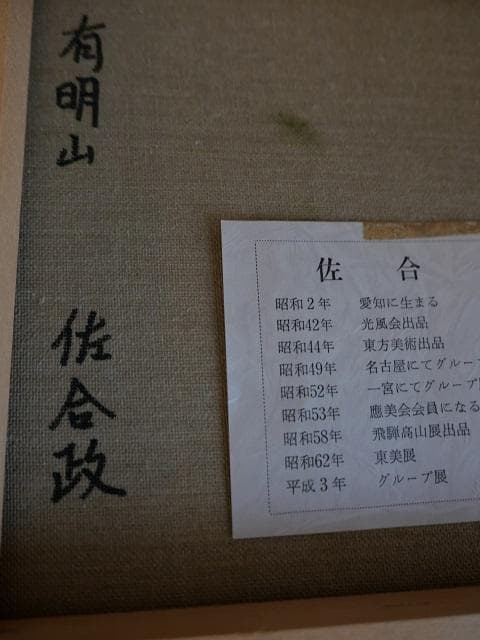 有明山
佐合政
佐　合
昭和2年　愛知に生まる
昭和42年　光風会出品
昭和44年　東方美術出品
昭和49年　名古屋にてグループ
昭和52年　一宮にてグループ
昭和53年　應美会会員になる
昭和58年　飛騨高山展出品
昭和62年　東美展
平成3年　グループ展